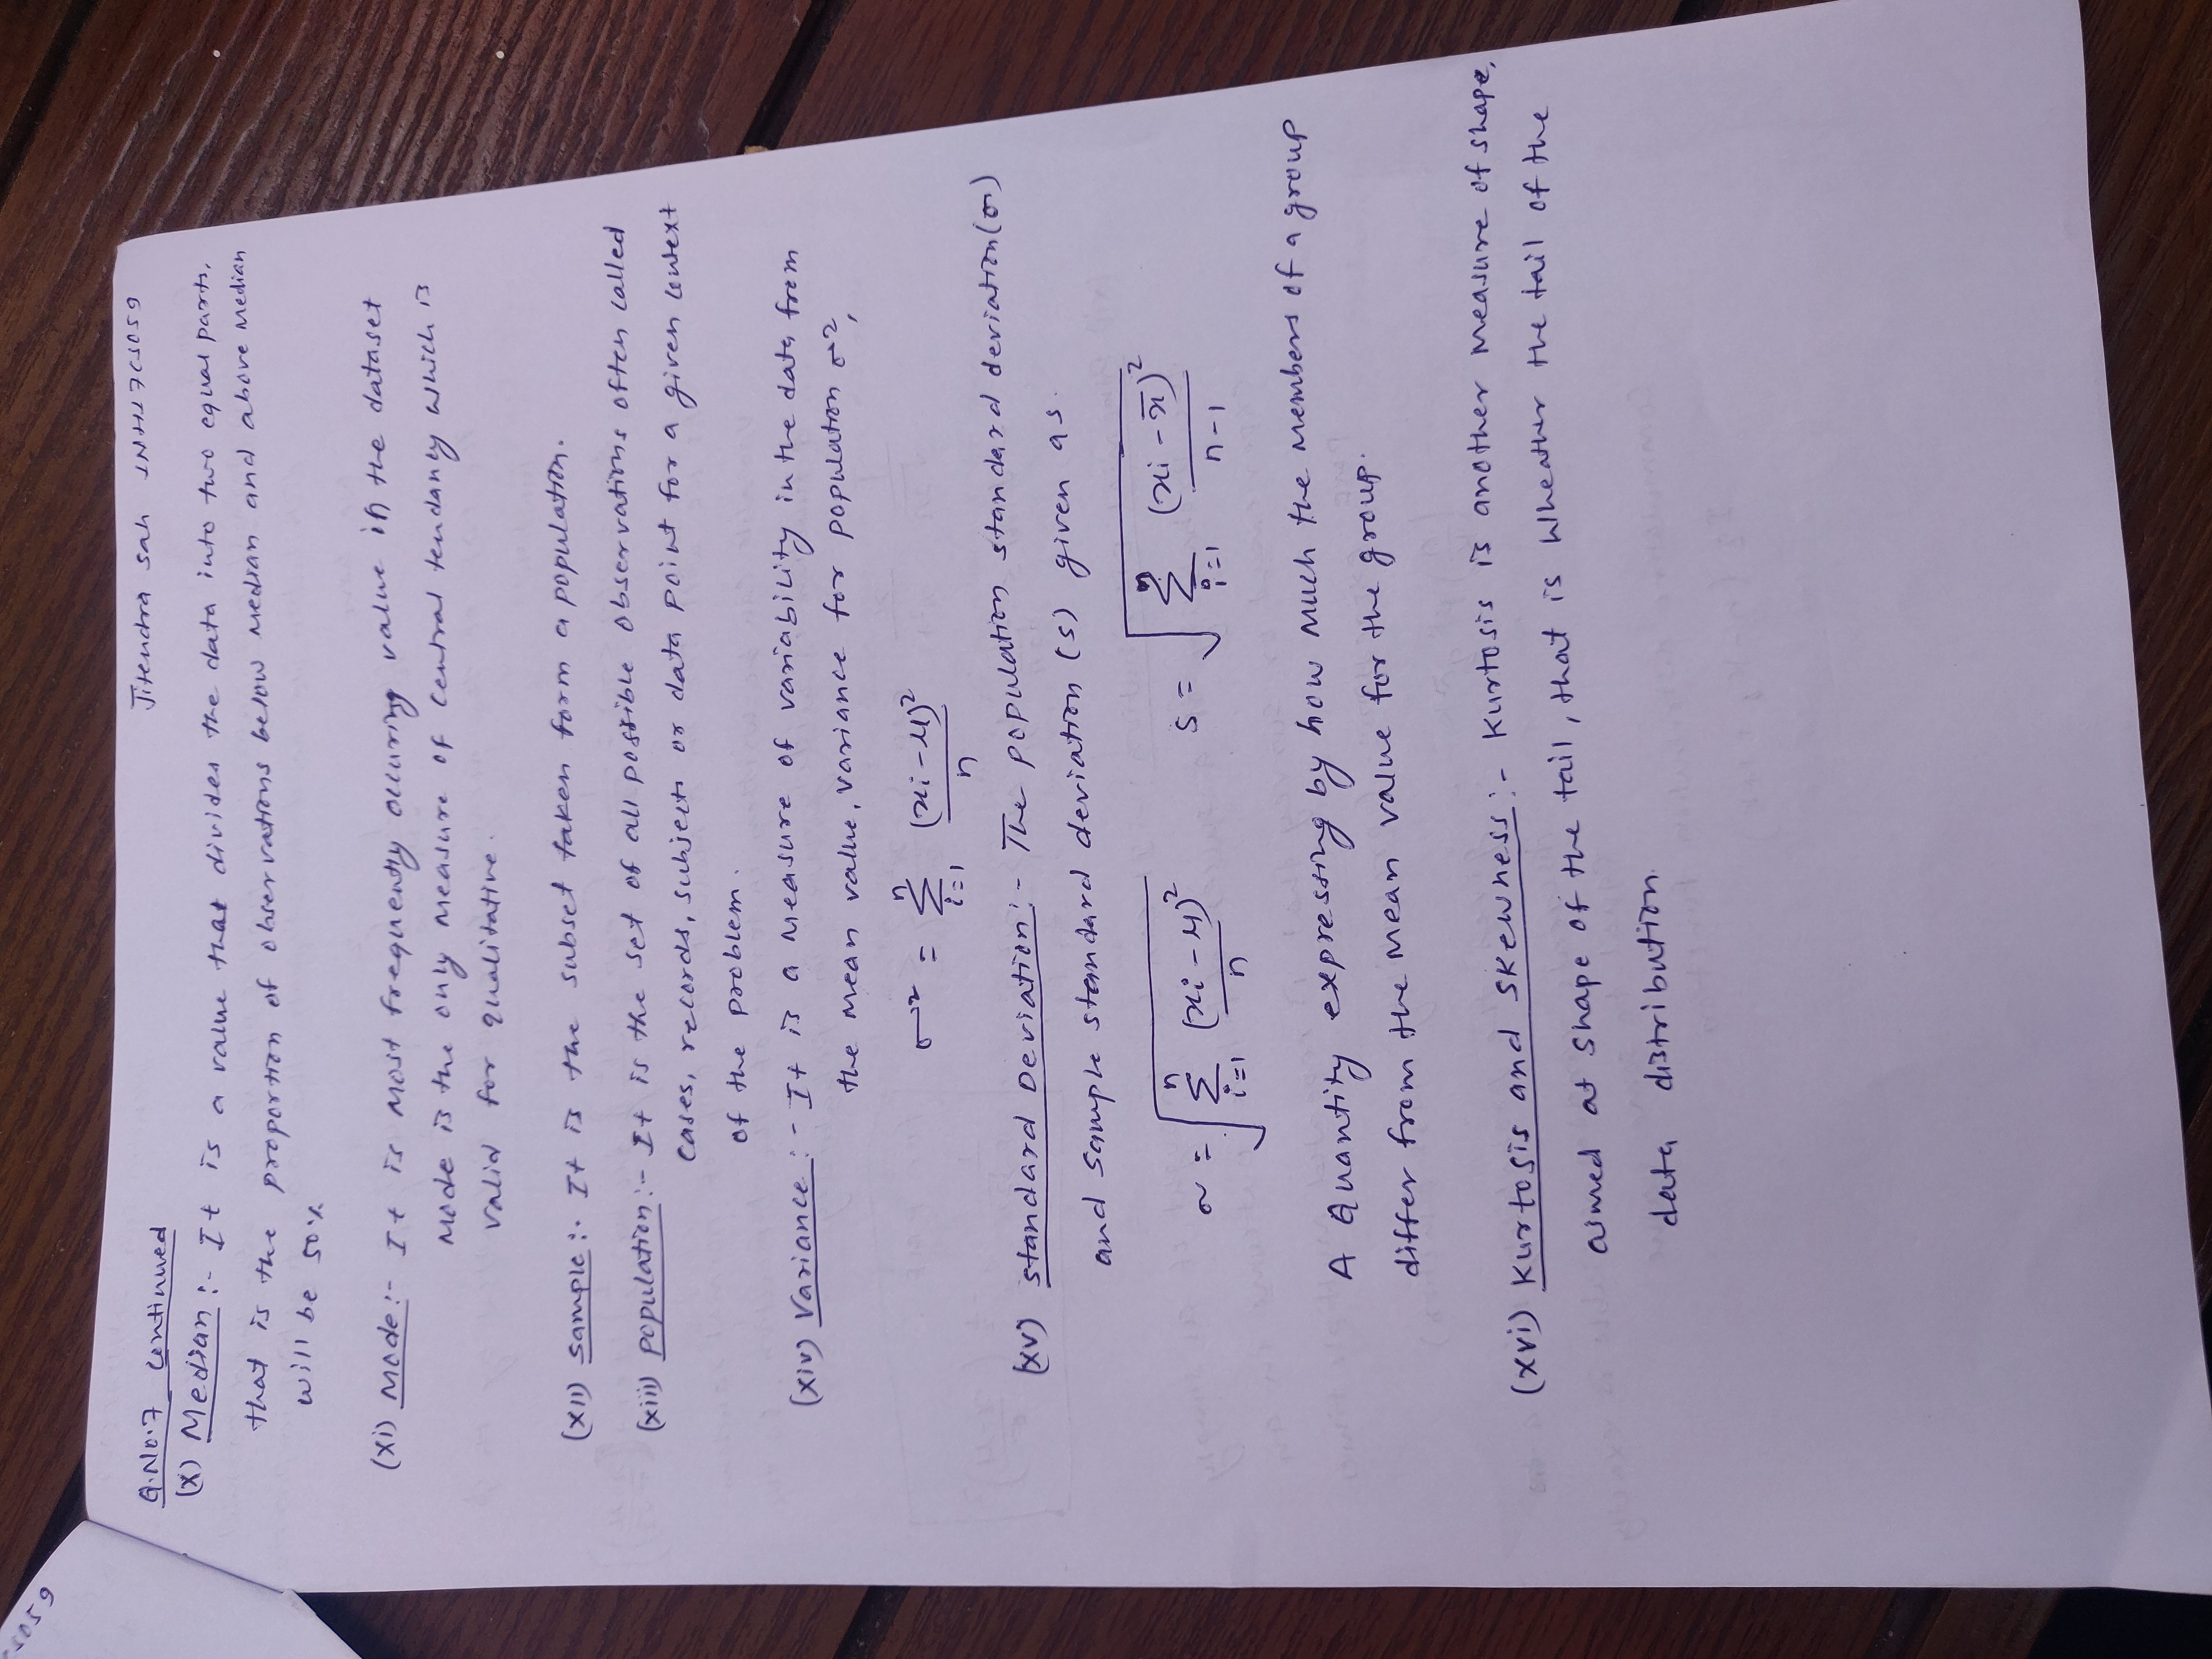 CS059
Jitendra Sah 1NH17CS059
Q.No.7 Continued
(X) Median :- It is a value that divides the data into two equal parts,
that is the proportion of observations below Median and above Median
will be 50%
(xi) Mode :- It is Most frequently occuring value in the dataset
Mode is the only measure of central tendancy which is
valid for qualitative.
(xii) Sample :- It is the subset taken form a population.
(xiii) population :- It is the set of all possible observations often called
cases, records, subjects or data point for a given context
of the problem.
(xiv) Variance :- It is a measure of variability in the data from
the mean value, variance for population σ²,
σ² = Σ_{i=1}^{n} (xi-μ)²/n
(xv) Standard Deviation :- The population standard deviation (σ)
and sample standard deviation (s) given as.
σ = √(Σ_{i=1}^{n} (xi-μ)²/n) s = √(Σ_{i=1}^{n} (xi-x̄)²/(n-1))
A Quantity expressing by how much the members of a group
differ from the mean value for the group.
(xvi) Kurtosis and Skewness :- Kurtosis is another measure of shape,
aimed at shape of the tail, that is wheather the tail of the
data distribution.